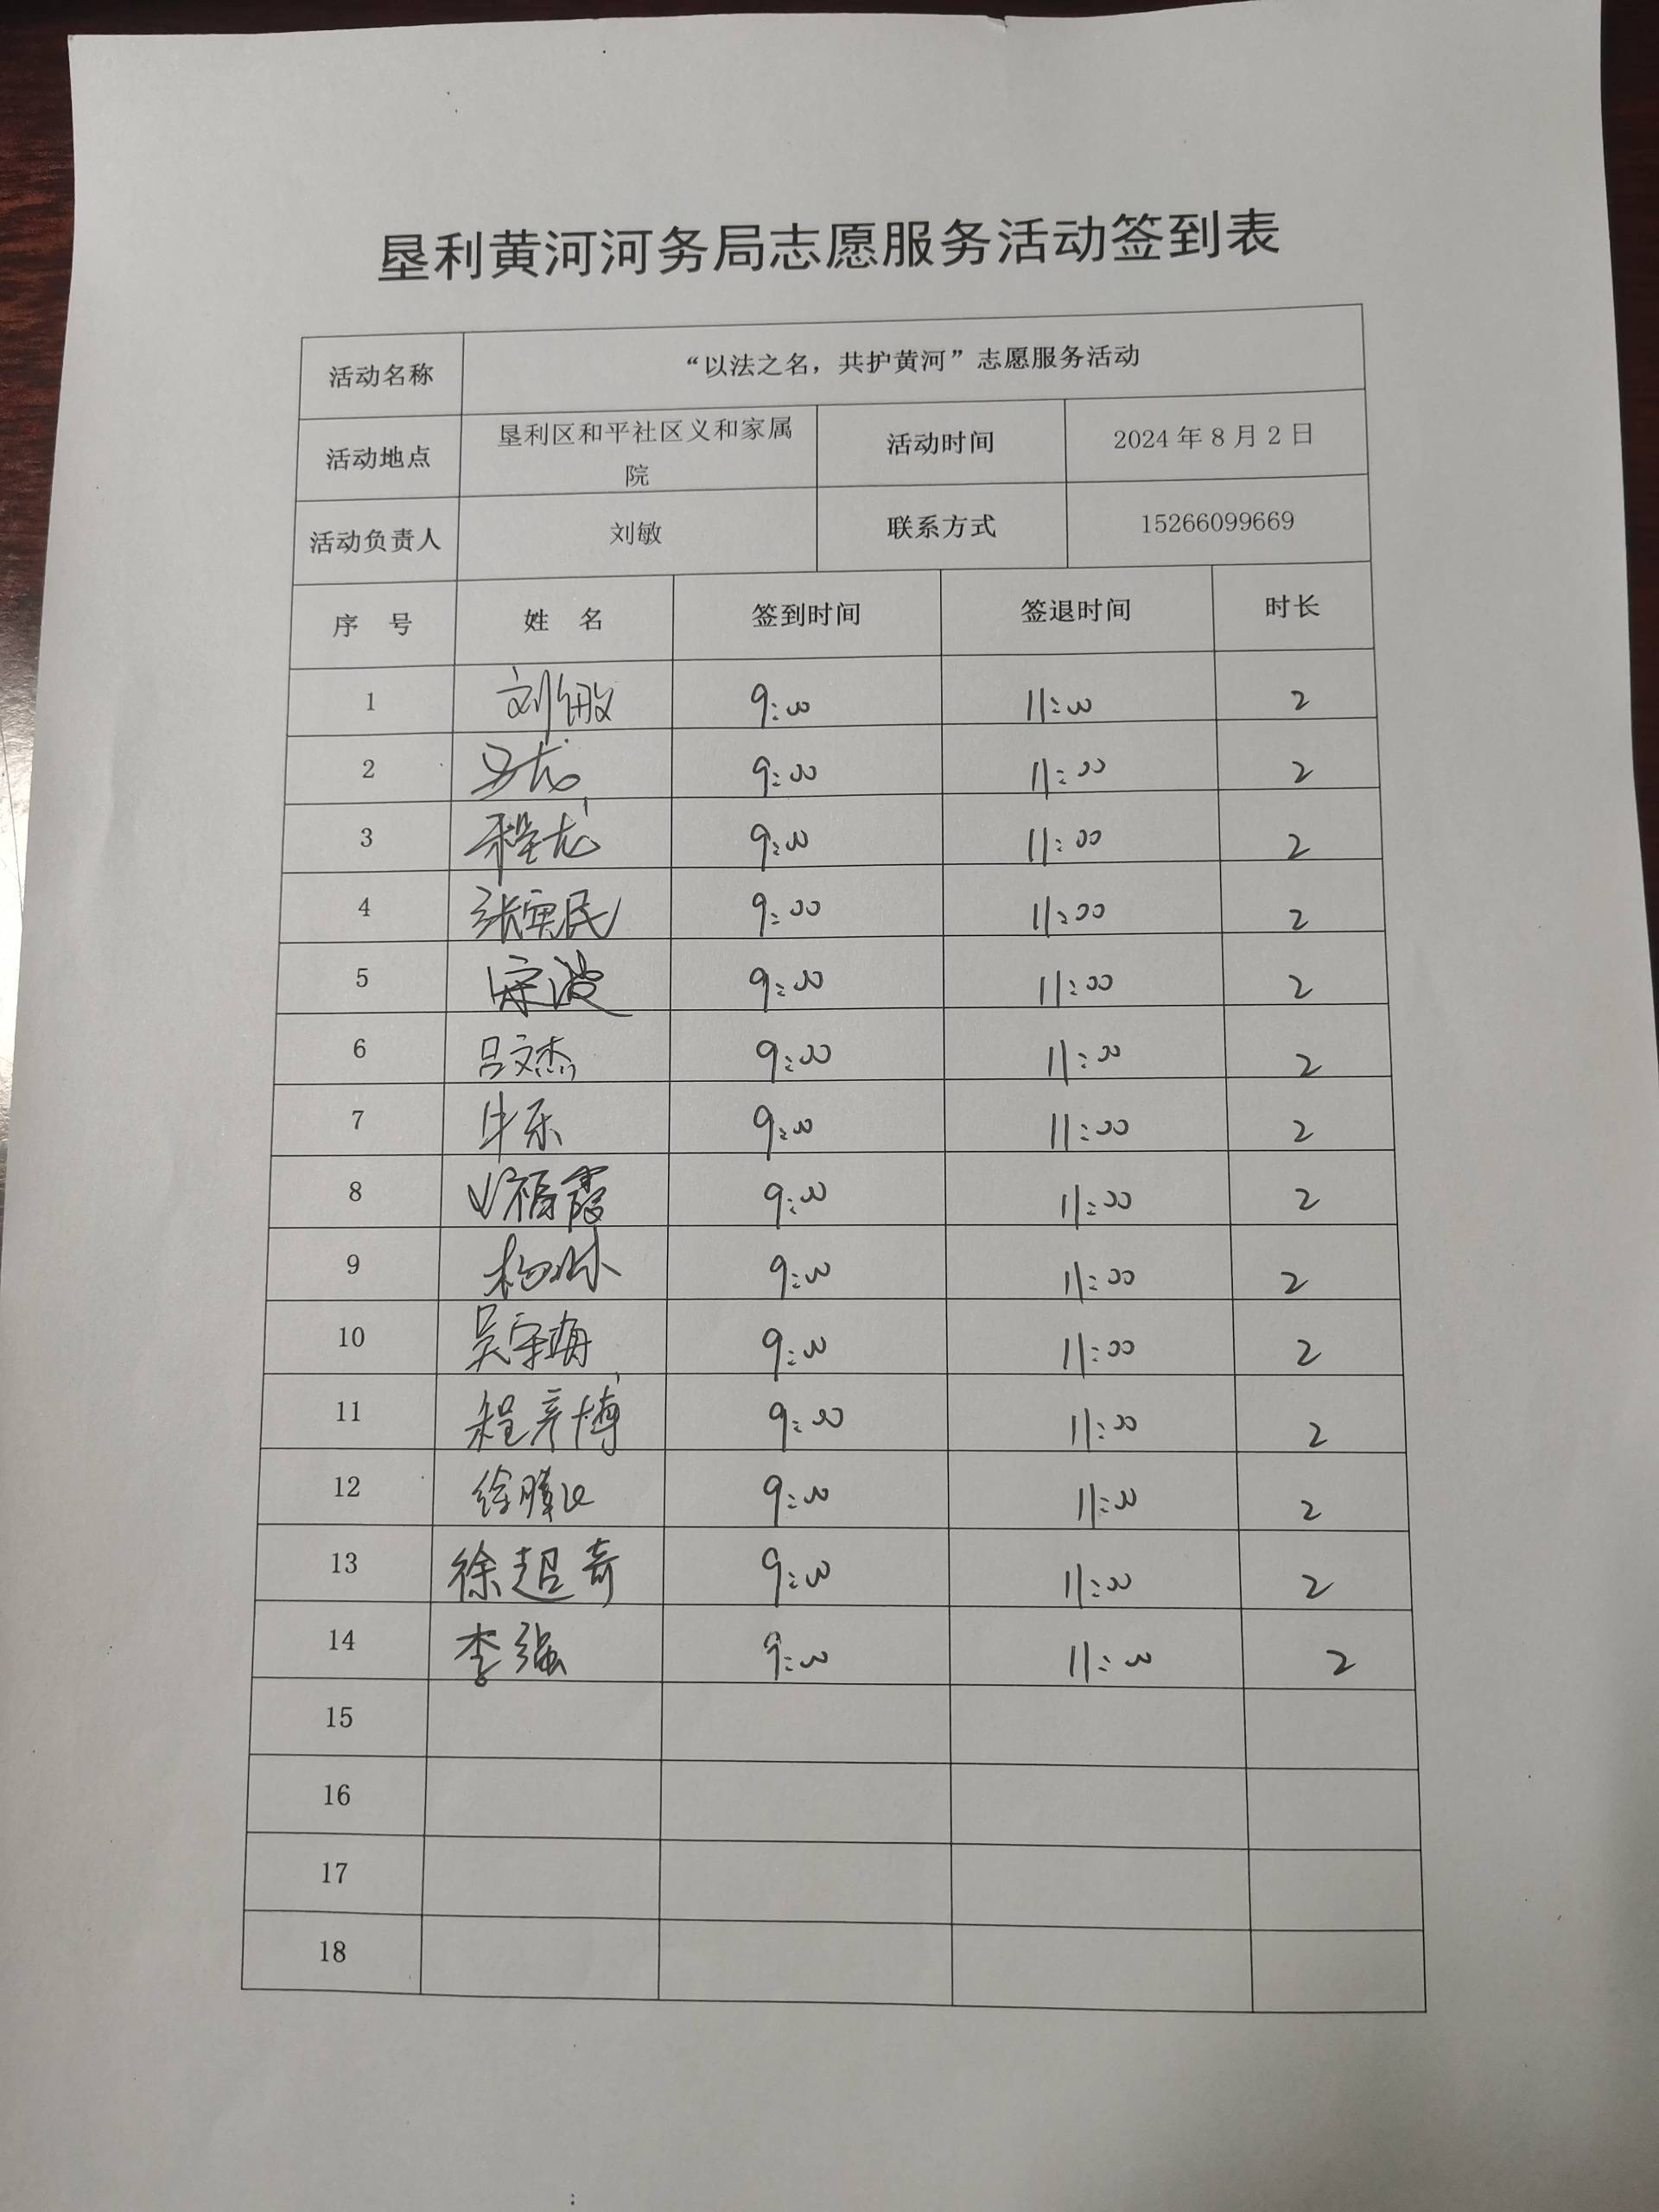 垦利黄河河务局志愿服务活动签到表
活动名称 “以法之名，共护黄河”志愿服务活动
活动地点 垦利区和平社区义和家属院 活动时间 2024年8月2日
活动负责人 刘敏 联系方式 15266099669
序号 姓名 签到时间 签退时间 时长
1 刘敏 9:00 11:00 2
2 马龙 9:00 11:00 2
3 程龙 9:00 11:00 2
4 张寅民 9:00 11:00 2
5 宋波 9:00 11:00 2
6 吕文杰 9:00 11:00 2
7 牛乐 9:00 11:00 2
8 福霞 9:00 11:00 2
9 杨琳 9:00 11:00 2
10 吴宗海 9:00 11:00 2
11 程彦博 9:00 11:00 2
12 徐 9:00 11:00 2
13 徐超奇 9:00 11:00 2
14 李强 9:00 11:00 2
15
16
17
18